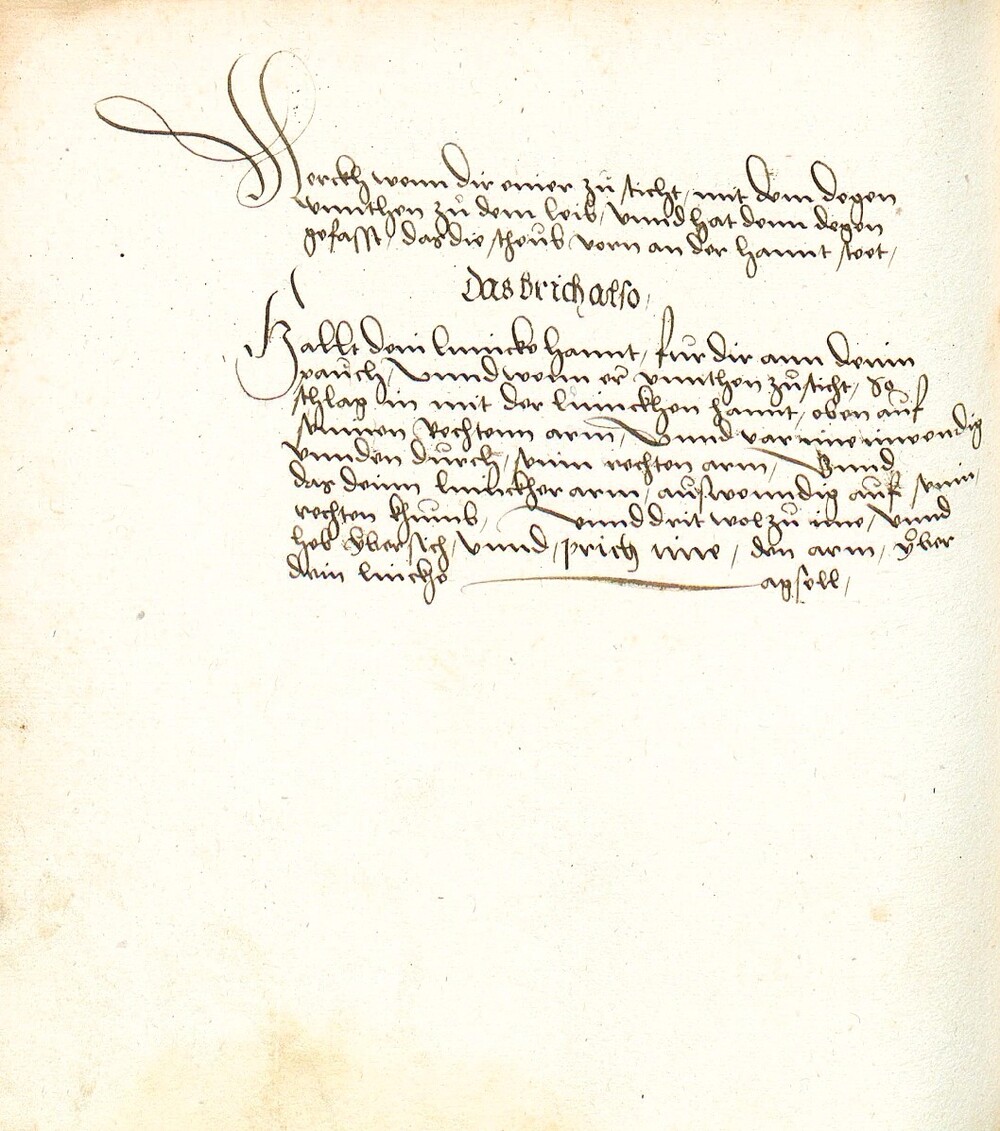 Merckh wenn dir einer zů sticht, mit dem degen
vnnthen zů dem leib, vnnd hat denn degen
gefasst, das die scheůb vorn an der hannt stet,
Das brich also,
Hallt dein linncke hannt, für dir ann deinn
paůch, Vnnd wenn er vnnthen zůsticht, so
schlag in mit der linnckhen hannt, oben aůf
seinnen Rechtenn arm, Vnnd var ime inwendig
vnnden důrch, seinn rechten arm, Vnnd
das deinn linnckher arm, aůswenndig aůf seinn,
rechten khumb, Vnnd drit wol zů ime, Vnnd
heb vber sich, Vnnd, prich ime, den arm, vber
dein lincke apsell,